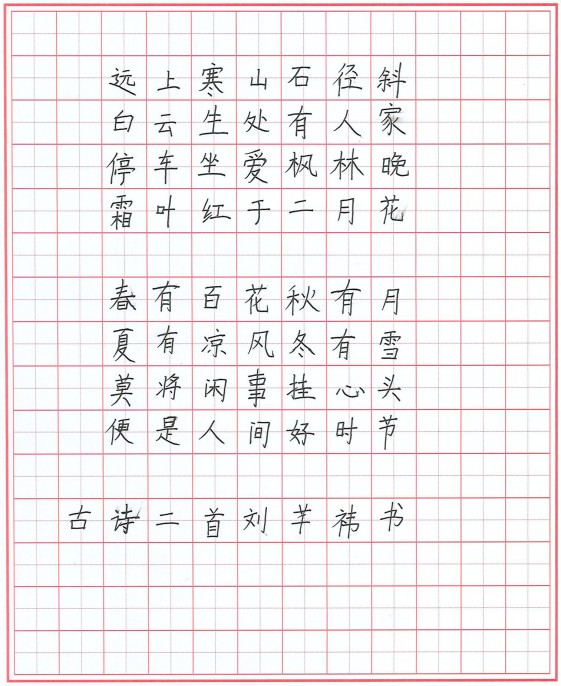 远上寒山石径斜
白云生处有人家
停车坐爱枫林晚
霜叶红于二月花
春有百花秋有月
夏有凉风冬有雪
莫将闲事挂心头
便是人间好时节
古诗二首刘羊祎书